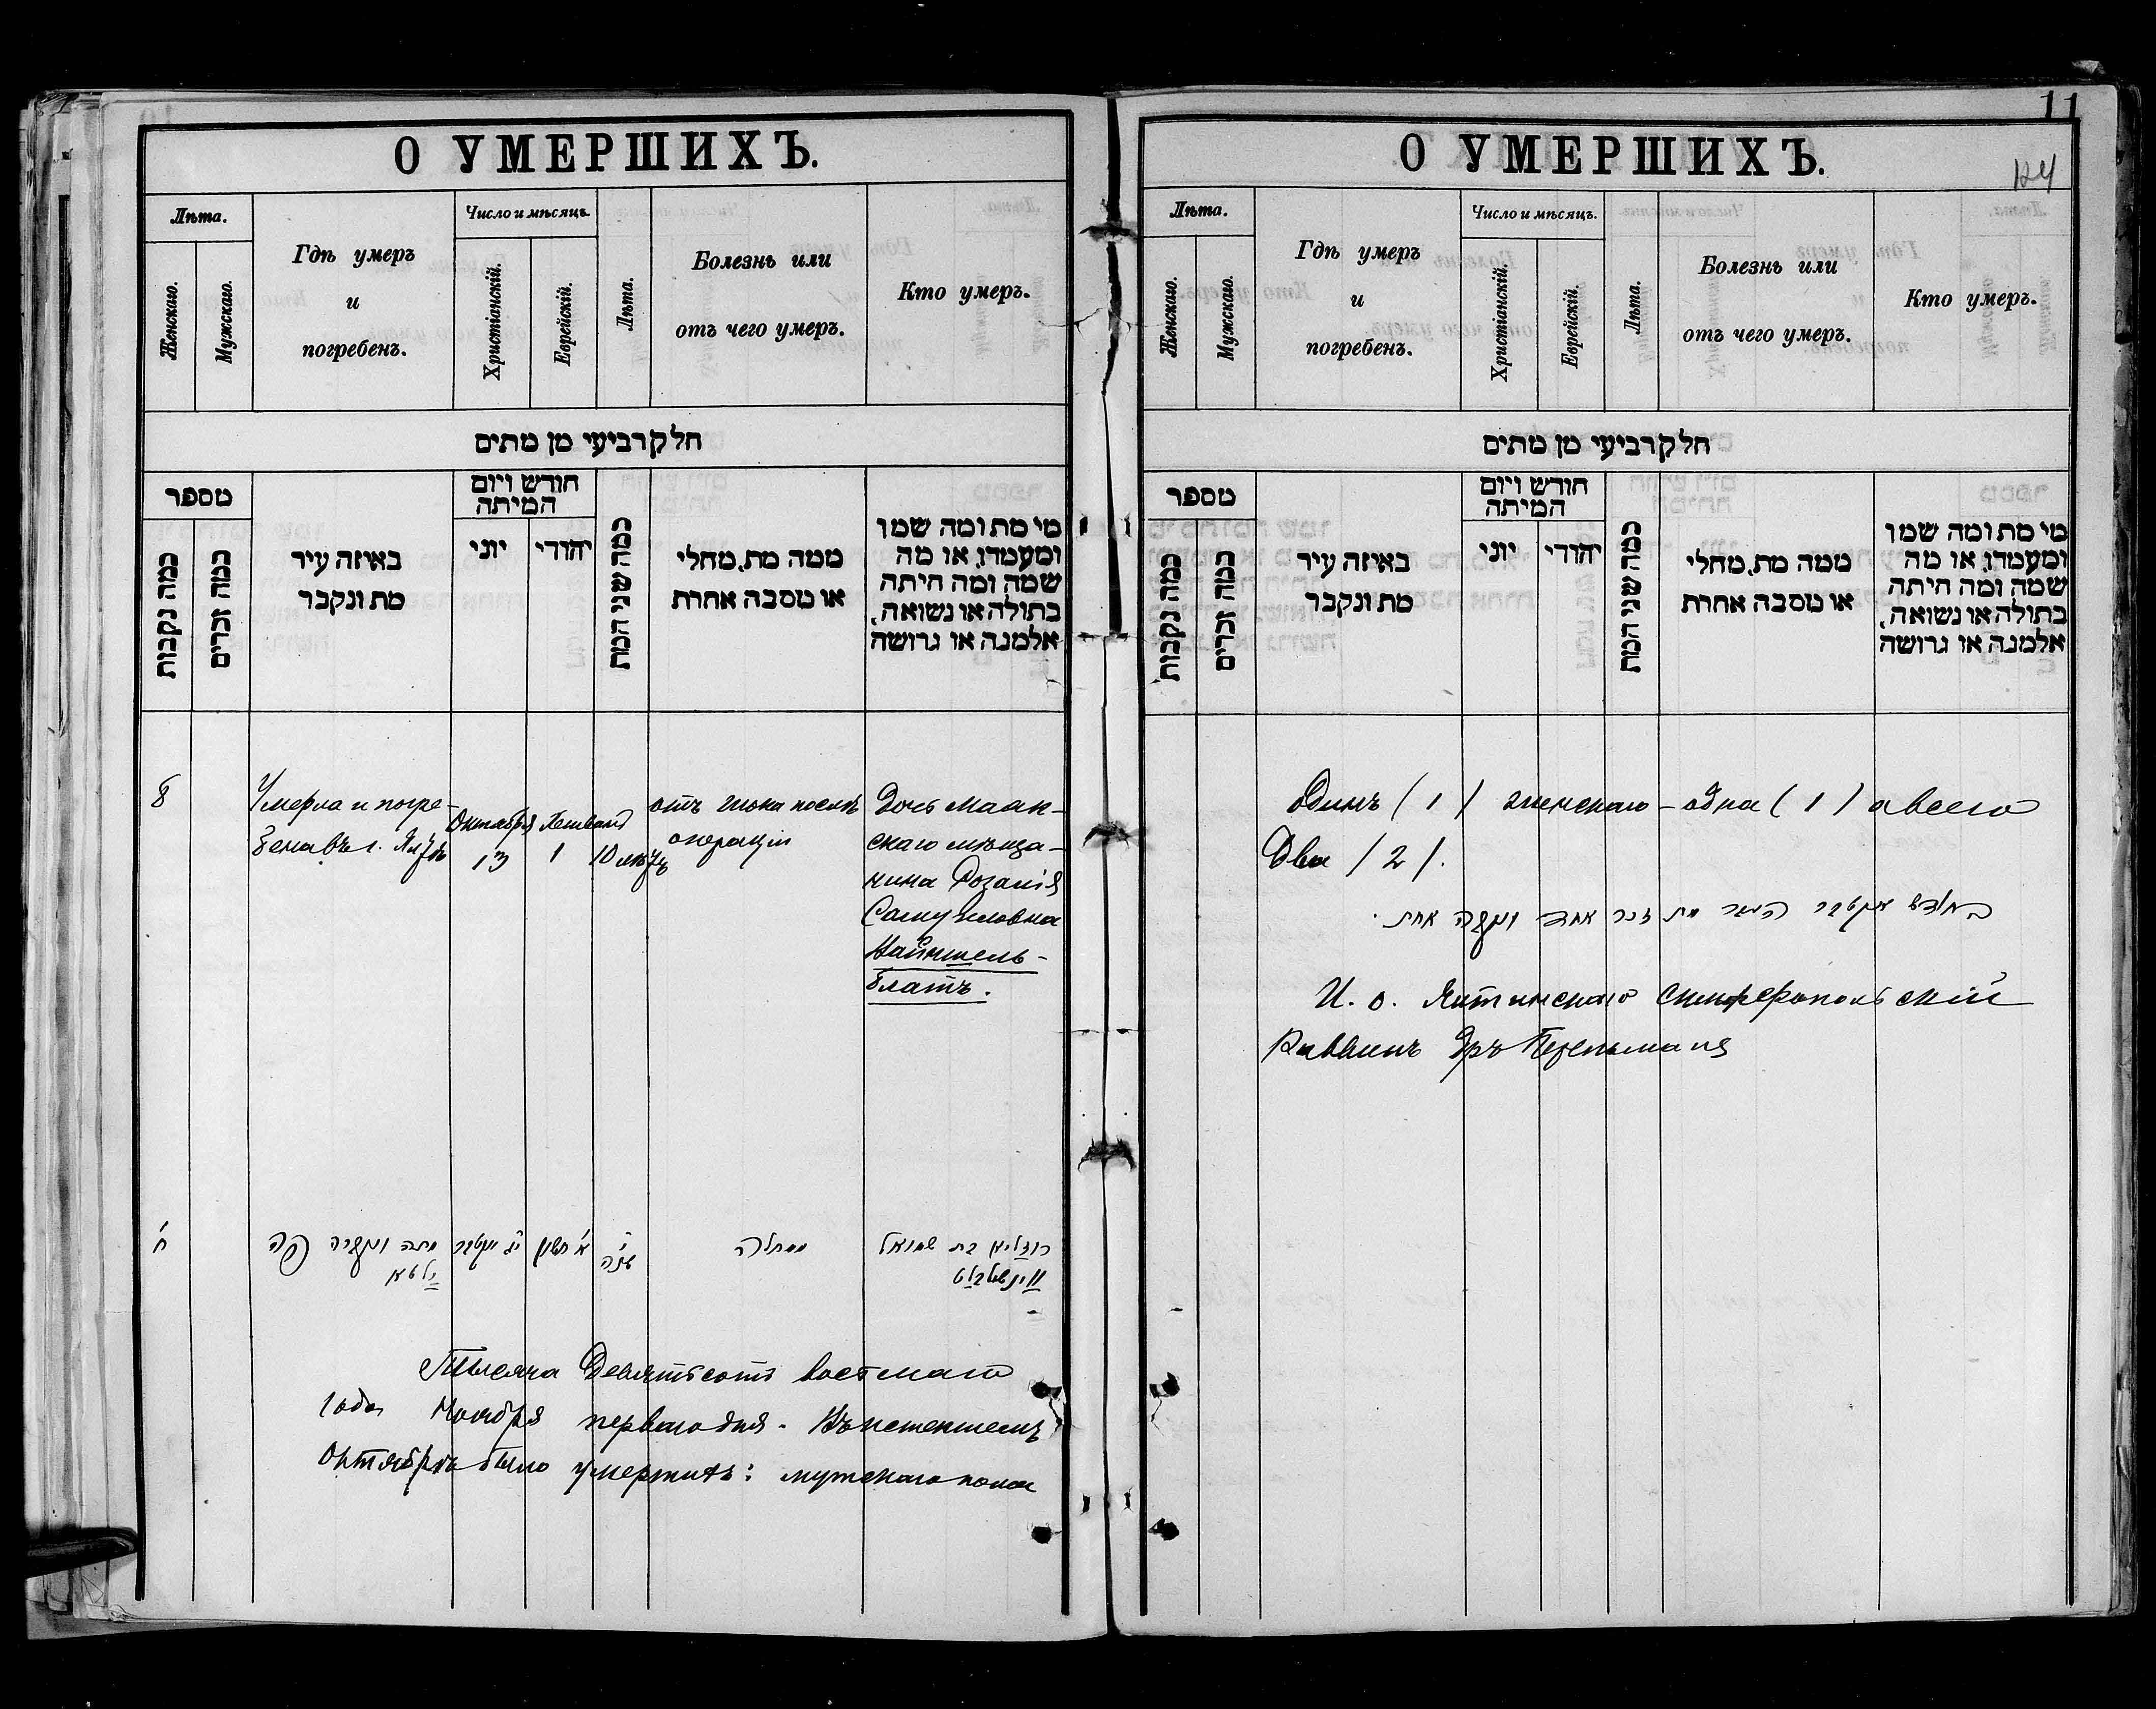 О УМЕРШИХЪ.
Лѣта.
Женскаго.
Мужскаго.
Гдѣ умеръ
и
погребенъ.
Число и мѣсяцъ.
Христіанскій.
Еврейскій.
Лѣта.
Болезнь или
отъ чего умеръ.
Кто умеръ.
חלק רביעי מן מתים
מספר
כמה נקבות
כמה זכרים
באיזה עיר
מת ונקבר
חודש ויום
המיתה
יוני
יהודי
כמה שני המת
ממה מת, מחלי
או מסבה אחרת
מי מת ומה שמו
ומעמדו, או מה
שמה ומה היתה
בתולה או נשואה,
אלמנה או גרושה
8
Умерла и погре-
бена въ г. Ялтѣ
Октября
13
Хешвана
1
10 лѣтъ
отъ шока послѣ
операціи
Дочь
скаго мѣща-
нина Розалія
Самуиловна
Вайншель-
блатъ.
ח'
מתה ונקברה פה
ילטא
י"ג אקטבר
א' חשון
י'
שנה
ממחלה
רוזליא בת שמואל
ווינשלבלט
Тысяча Девятьсотъ восьмаго
года Ноября перваго дня. Въ истекшемъ
Октябрѣ было умершихъ: мужскаго пола
11
О УМЕРШИХЪ.
124
Лѣта.
Женскаго.
Мужскаго.
Гдѣ умеръ
и
погребенъ.
Число и мѣсяцъ.
Христіанскій.
Еврейскій.
Лѣта.
Болезнь или
отъ чего умеръ.
Кто умеръ.
חלק רביעי מן מתים
מספר
כמה נקבות
כמה זכרים
באיזה עיר
מת ונקבר
חודש ויום
המיתה
יוני
יהודי
כמה שני המת
ממה מת, מחלי
או מסבה אחרת
מי מת ומה שמו
ומעמדו, או מה
שמה ומה היתה
בתולה או נשואה,
אלמנה או גרושה
Одинъ (1) женскаго - одна (1) а всего
Два /2/.
בחודש אקטבר העבר מת זכר אחד ונקבה אחת.
И. о. Ялтинскаго Симферопольскій
Раввинъ Дръ